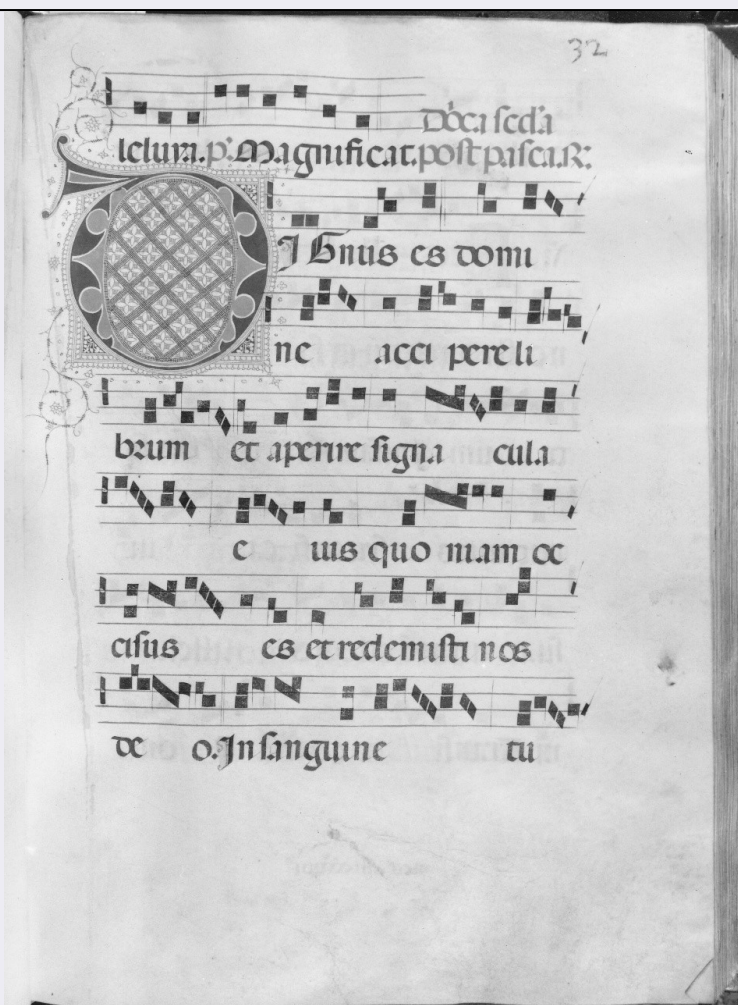 32
Dn̄ca scd'a
leluya. ps. Magnificat. post pasca. R:
DIgnus es domi
ne acci pere li
brum et aperire signa cula
e ius quo niam oc
cisus es et redemisti nos
de o. In sanguine tu